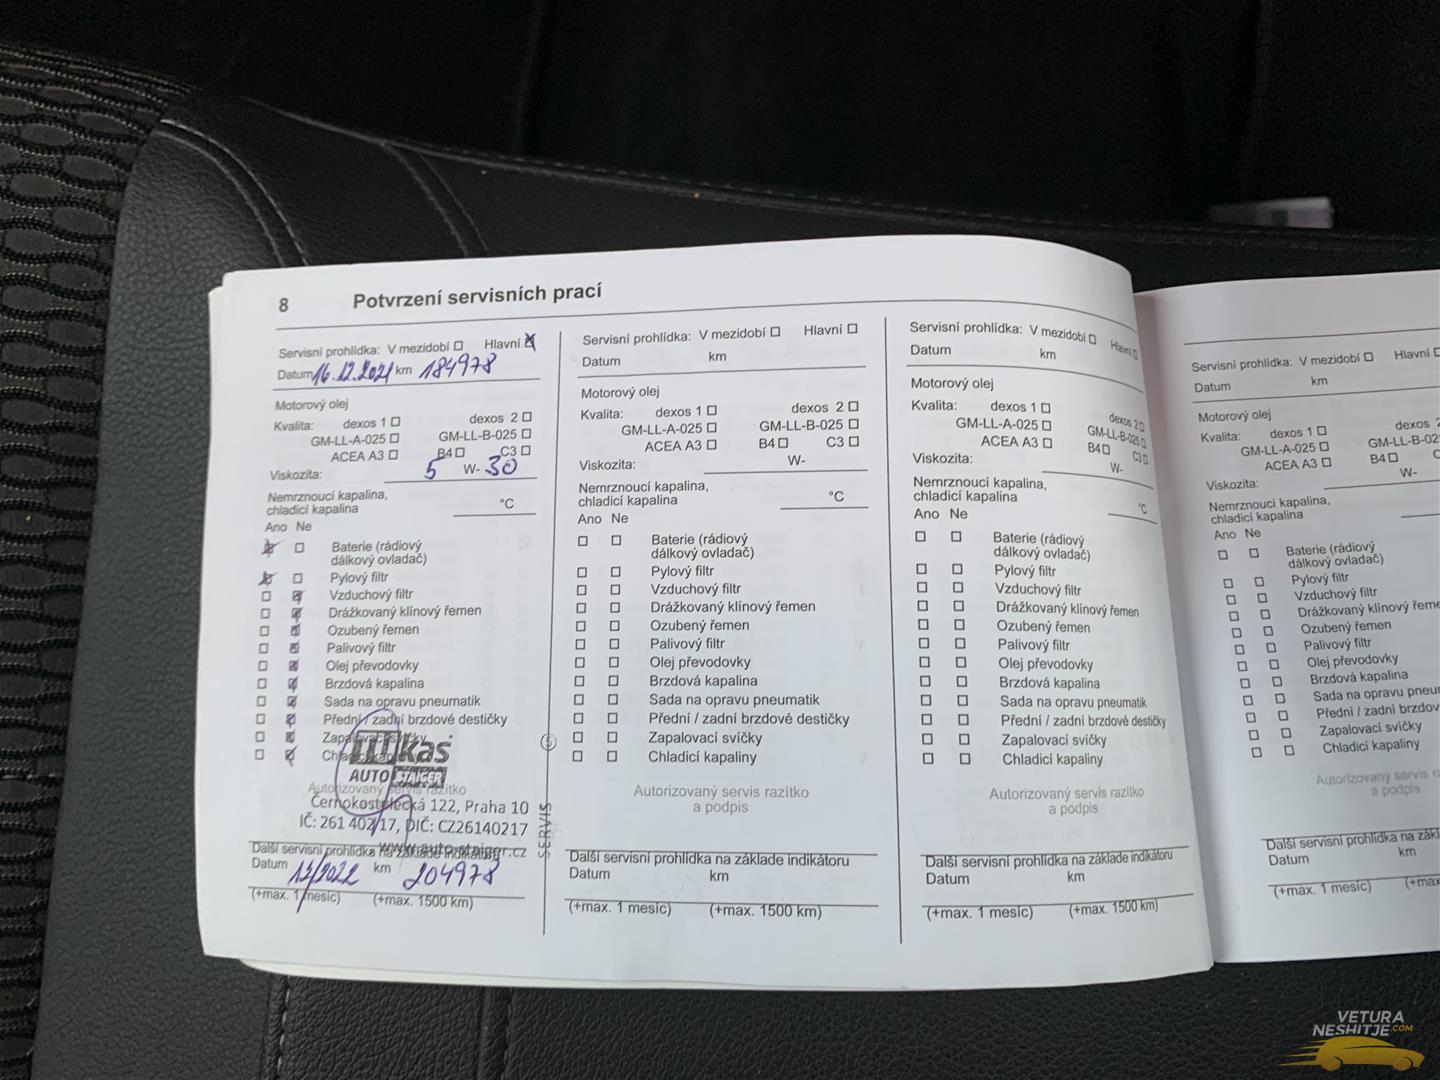 8 Potvrzení servisních prací
Servisní prohlídka: V mezidobí Hlavní
Datum 16.12.2021 km 184978
Motorový olej
Kvalita: dexos 1 dexos 2
GM-LL-A-025 GM-LL-B-025
ACEA A3 B4 C3
Viskozita: 5 W- 30
Nemrznoucí kapalina,
chladicí kapalina °C
Ano Ne
Baterie (rádiový
dálkový ovladač)
Pylový filtr
Vzduchový filtr
Drážkovaný klínový řemen
Ozubený řemen
Palivový filtr
Olej převodovky
Brzdová kapalina
Sada na opravu pneumatik
Přední / zadní brzdové destičky
Zapalovací svíčky
AUTO STAIGER
Autorizovaný servis razítko
Černokostelecká 122, Praha 10
IČ: 261 402 17, DIČ: CZ26140217
www.auto-staiger.cz
Další servisní prohlídka na základe indikátoru
Datum 12/2022 km 204978
(+max. 1 mesíc) (+max. 1500 km)
SERVIS
Servisní prohlídka: V mezidobí Hlavní
Datum km
Motorový olej
Kvalita: dexos 1 dexos 2
GM-LL-A-025 GM-LL-B-025
ACEA A3 B4 C3
Viskozita: W-
Nemrznoucí kapalina,
chladicí kapalina °C
Ano Ne
Baterie (rádiový
dálkový ovladač)
Pylový filtr
Vzduchový filtr
Drážkovaný klínový řemen
Ozubený řemen
Palivový filtr
Olej převodovky
Brzdová kapalina
Sada na opravu pneumatik
Přední / zadní brzdové destičky
Zapalovací svíčky
Chladicí kapaliny
Autorizovaný servis razítko
a podpis
Další servisní prohlídka na základe indikátoru
Datum km
(+max. 1 mesíc) (+max. 1500 km)
Servisní prohlídka: V mezidobí Hlavní
Datum km
Motorový olej
Kvalita: dexos 1 dexos 2
GM-LL-A-025 GM-LL-B-025
ACEA A3 B4 C3
Viskozita: W-
Nemrznoucí kapalina,
chladicí kapalina °C
Ano Ne
Baterie (rádiový
dálkový ovladač)
Pylový filtr
Vzduchový filtr
Drážkovaný klínový řemen
Ozubený řemen
Palivový filtr
Olej převodovky
Brzdová kapalina
Sada na opravu pneumatik
Přední / zadní brzdové destičky
Zapalovací svíčky
Chladicí kapaliny
Autorizovaný servis razítko
a podpis
Další servisní prohlídka na základe indikátoru
Datum km
(+max. 1 mesíc) (+max. 1500 km)
Servisní prohlídka: V mezidobí Hlavní
Datum km
Motorový olej
Kvalita: dexos 1 dexos
GM-LL-A-025 GM-LL-B-02
ACEA A3 B4
Viskozita: W-
Nemrznoucí kapalina,
chladicí kapalina
Ano Ne
Baterie (rádiový
dálkový ovladač)
Pylový filtr
Vzduchový filtr
Drážkovaný klínový řeme
Ozubený řemen
Palivový filtr
Olej převodovky
Brzdová kapalina
Sada na opravu pneu
Přední / zadní brzdov
Zapalovací svíčky
Chladicí kapaliny
Autorizovaný servis r
a podpis
Další servisní prohlídka na zák
Datum km
(+max. 1 mesíc) (+max
VETURA
NESHITJE.COM